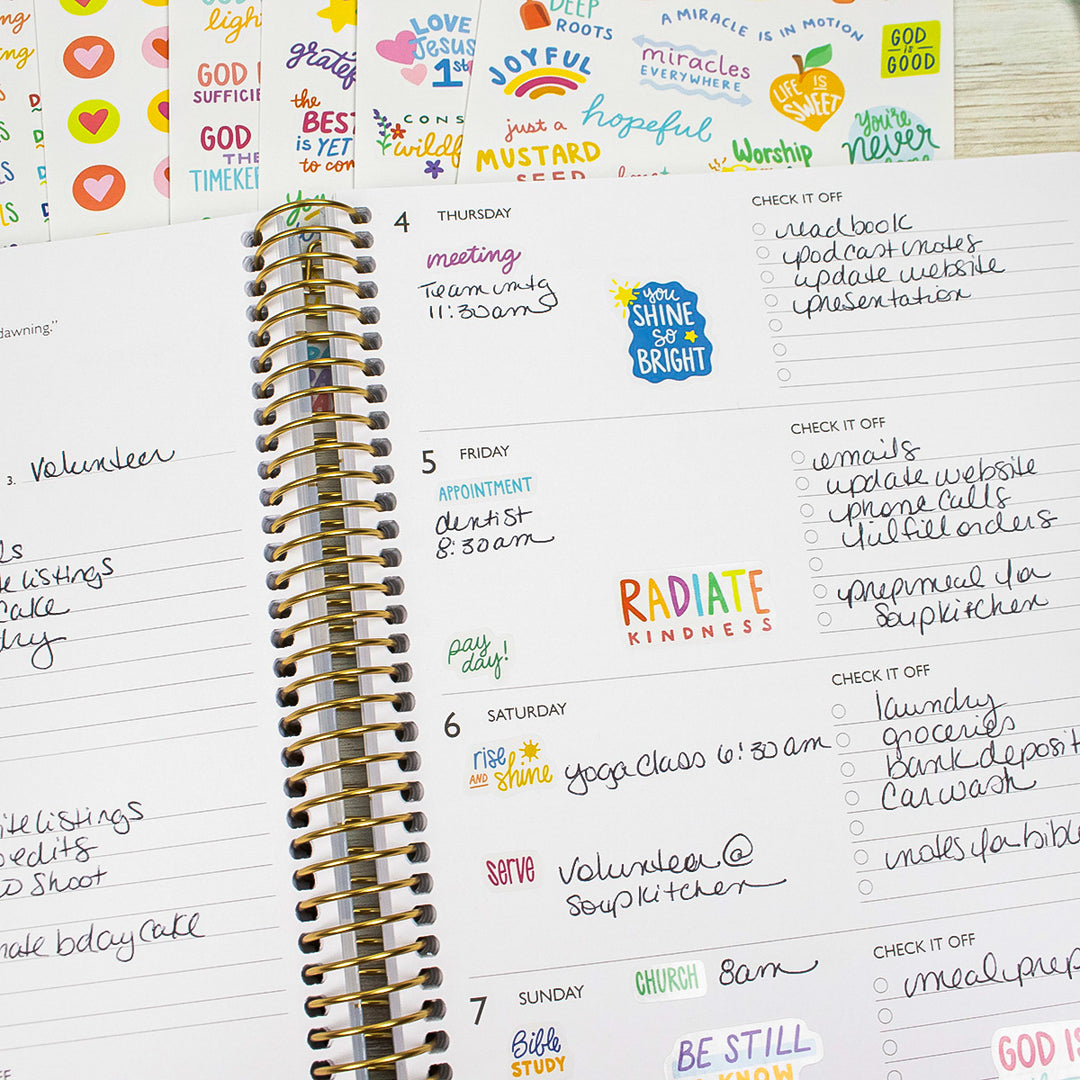 light
GOD
SUFFICIE
GOD
THE
TIMEKEE
grateful
the
BEST
is YET
to com
LOVE
Jesus
1st
CONS
wildf
DEEP
ROOTS
JOYFUL
A MIRACLE IS IN MOTION
miracles
EVERYWHERE
LIFE IS
SWEET
GOD
is
GOOD
just a
MUSTARD
SEED
hopeful
Worship
You're
never
dawning."
3. Volunteer
listings
cake
listings
edits
shoot
bday cake
4 THURSDAY
meeting
Team mtg
11:30am
you
SHINE
so
BRIGHT
CHECK IT OFF
read book
podcast notes
update website
presentation
5 FRIDAY
APPOINTMENT
dentist
8:30am
pay
day!
RADIATE
KINDNESS
CHECK IT OFF
emails
update website
phone calls
fulfill orders
prep meal for
soup kitchen
6 SATURDAY
rise
AND shine
yoga class 6:30am
serve
volunteer @
soup kitchen
CHECK IT OFF
laundry
groceries
bank deposit
car wash
notes for bible
7 SUNDAY
CHURCH 8am
Bible
STUDY
BE STILL
KNOW
CHECK IT OFF
meal prep
GOD IS